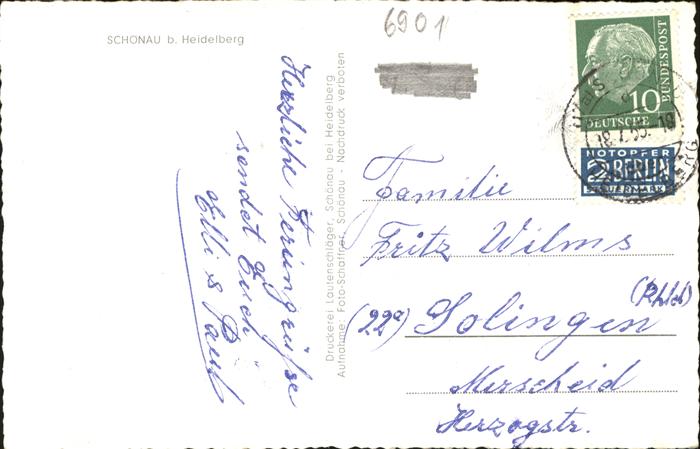 6901
SCHÖNAU b. Heidelberg
Herzliche Feriengrüße
sendet Euch
Elli & Paul
Druckerei Lautenschläger, Schönau bei Heidelberg
Aufnahme: Foto-Schaffner, Schönau - Nachdruck verboten
10
DEUTSCHE
BUNDESPOST
NOTOPFER
2 BERLIN
STEUERMARKE
Familie
Fritz Wilms
(22a) Solingen (Rhld)
Merscheid
Herzogstr.